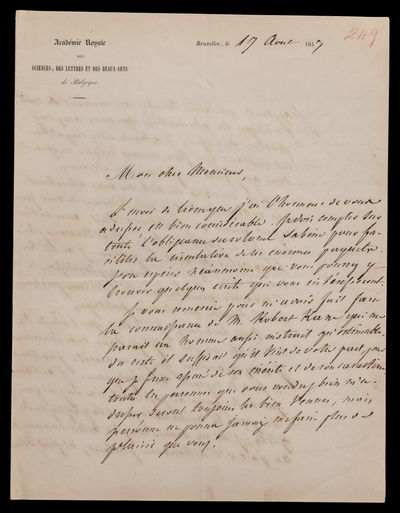 Académie Royale
DES
SCIENCES, DES LETTRES ET DES BEAUX-ARTS
de Belgique.
Bruxelles, le 17 Avril 1857
249
Mon cher Monsieur,
L'envoi de bienvenu j'ai l'honneur de vous
est bien considérable. Je dois compter sur
toute l'obligeance du colonel Sabine pour fa-
ciliter la circulation de ces énormes paquets
J'ose espérer néanmoins que vous pourrez y
trouver quelques écrits qui vous intéresseront.
Je vous remercie pour m'avoir fait faire
la connaissance de M. Robert Keene qui me
parait un homme aussi instruit qu'estimable.
du reste il suffisait qu'il vînt de votre part, pour
que je fusse assuré de son mérite et de son caractère
toutes les personnes que vous voudrez bien m'a-
dresser seront toujours les bien venues, mais
personne ne pourra jamais me faire plus de
plaisir que vous.